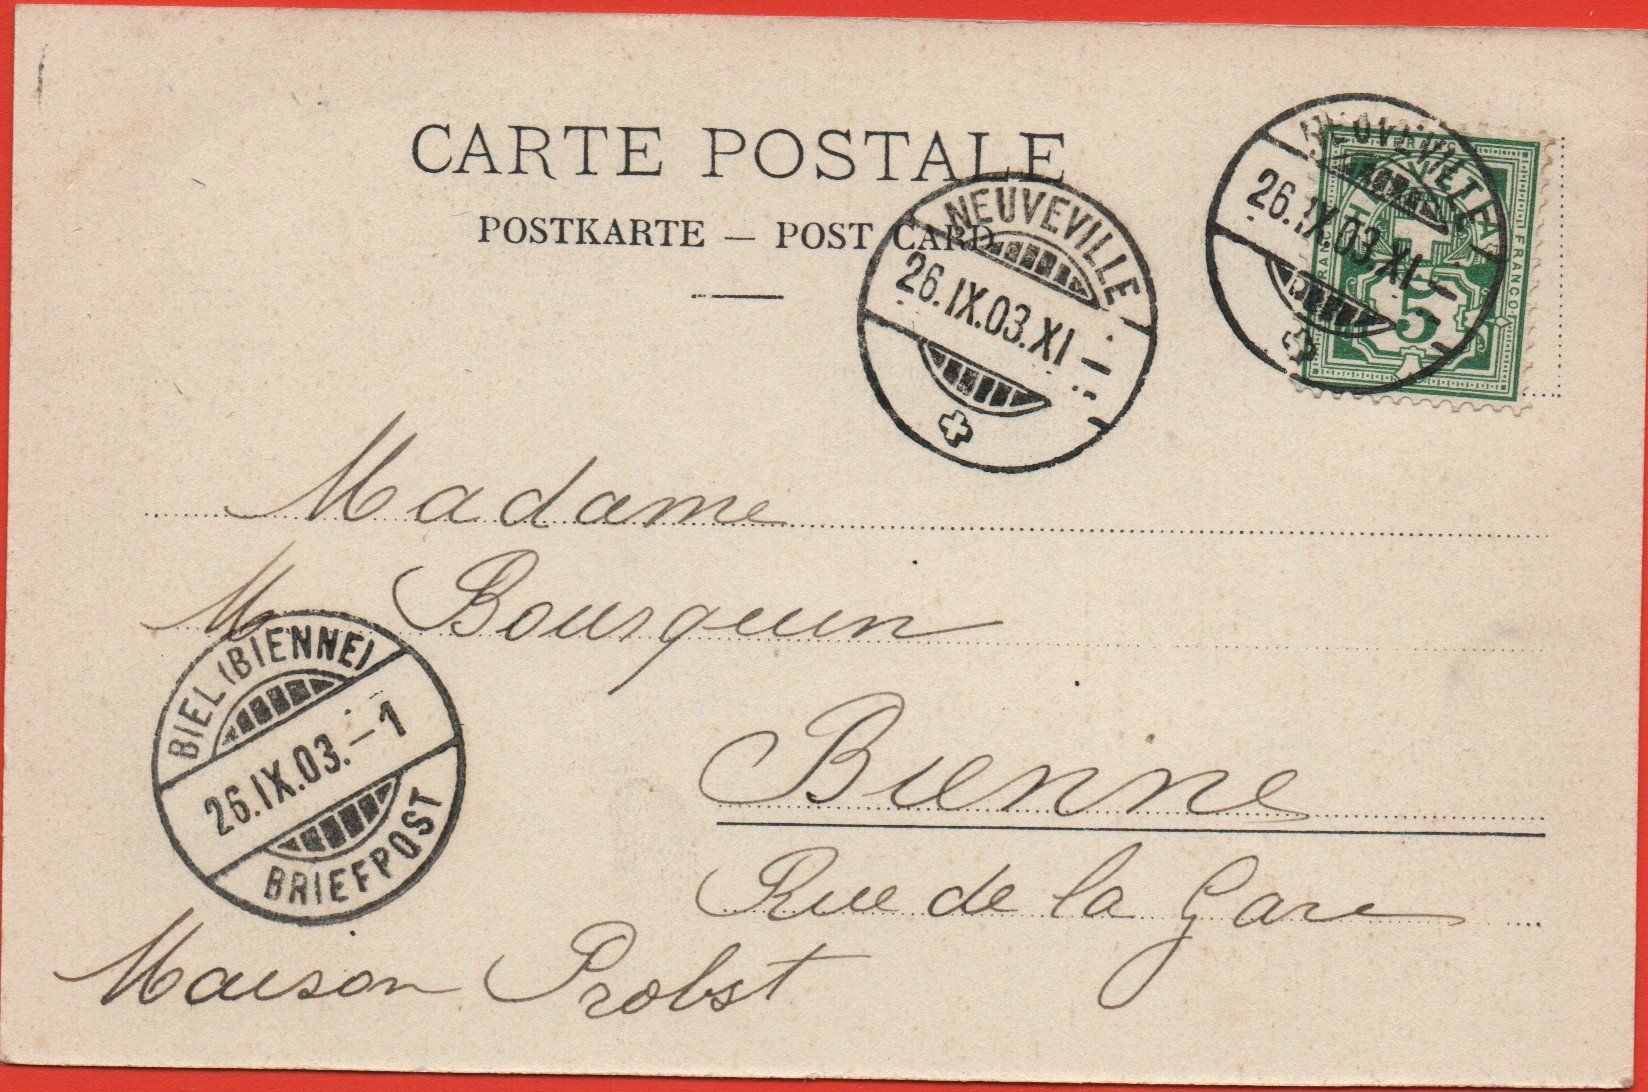 CARTE POSTALE
POSTKARTE — POST CARD
NEUVEVILLE
26.IX.03.XI—
NEUVEVILLE
26.IX.03.XI—
FRANCO
5
Madame
M Bourquin
Bienne
Rue de la Gare
Maison Probst
BIEL (BIENNE)
26.IX.03.—1
BRIEFPOST